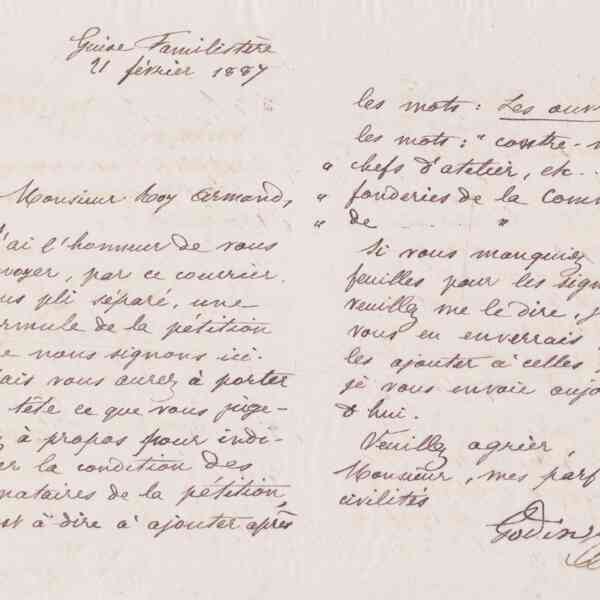 Guise Familistère
21 février 1887
Monsieur Roy Armand,
J'ai l'honneur de vous
nvoyer, par ce courrier.
us pli séparé, une
rmule de la pétition
e nous signons ici.
ais vous aurez à porter
tête ce que vous juge-
z à propos pour indi-
er la condition des
nataires de la pétition,
st à dire à ajouter après
les mots : Les ouv
les mots : " contre-m
" chefs d'atelier, etc..
" fonderies de la Comm
" de ........ "
Si vous manquiez
feuilles pour les sign
veuillez me le dire, j
vous en enverrais
les ajouter à celles
je vous envoie aujo
d'hui.
Veuillez agréer,
Monsieur, mes parf
civilités
Godin